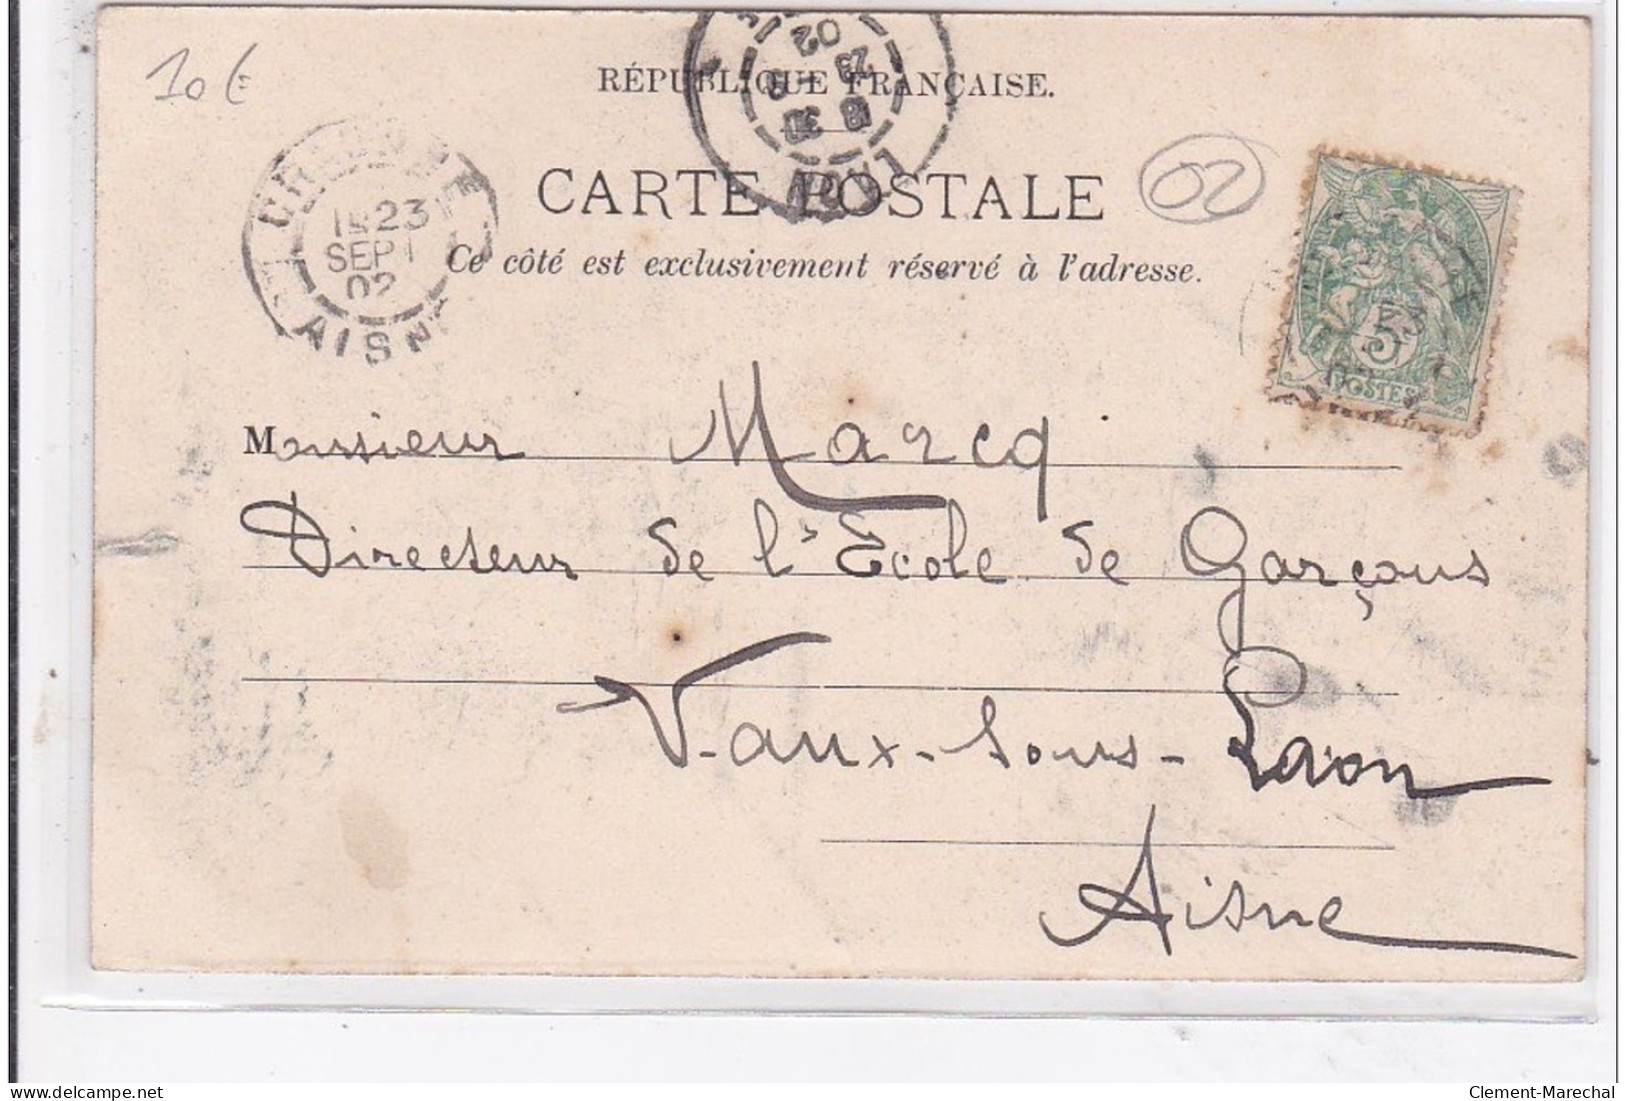 10 €
RÉPUBLIQUE FRANÇAISE.
18 30
23 9
02
LAON
CARTE POSTALE
02
Ce côté est exclusivement réservé à l'adresse.
23
SEPT
02
AISNE
5
POSTES
Monsieur Marcq
Directeur de l'École de Garçons
Vaux-sous-Laon
Aisne
Clement-Marechal